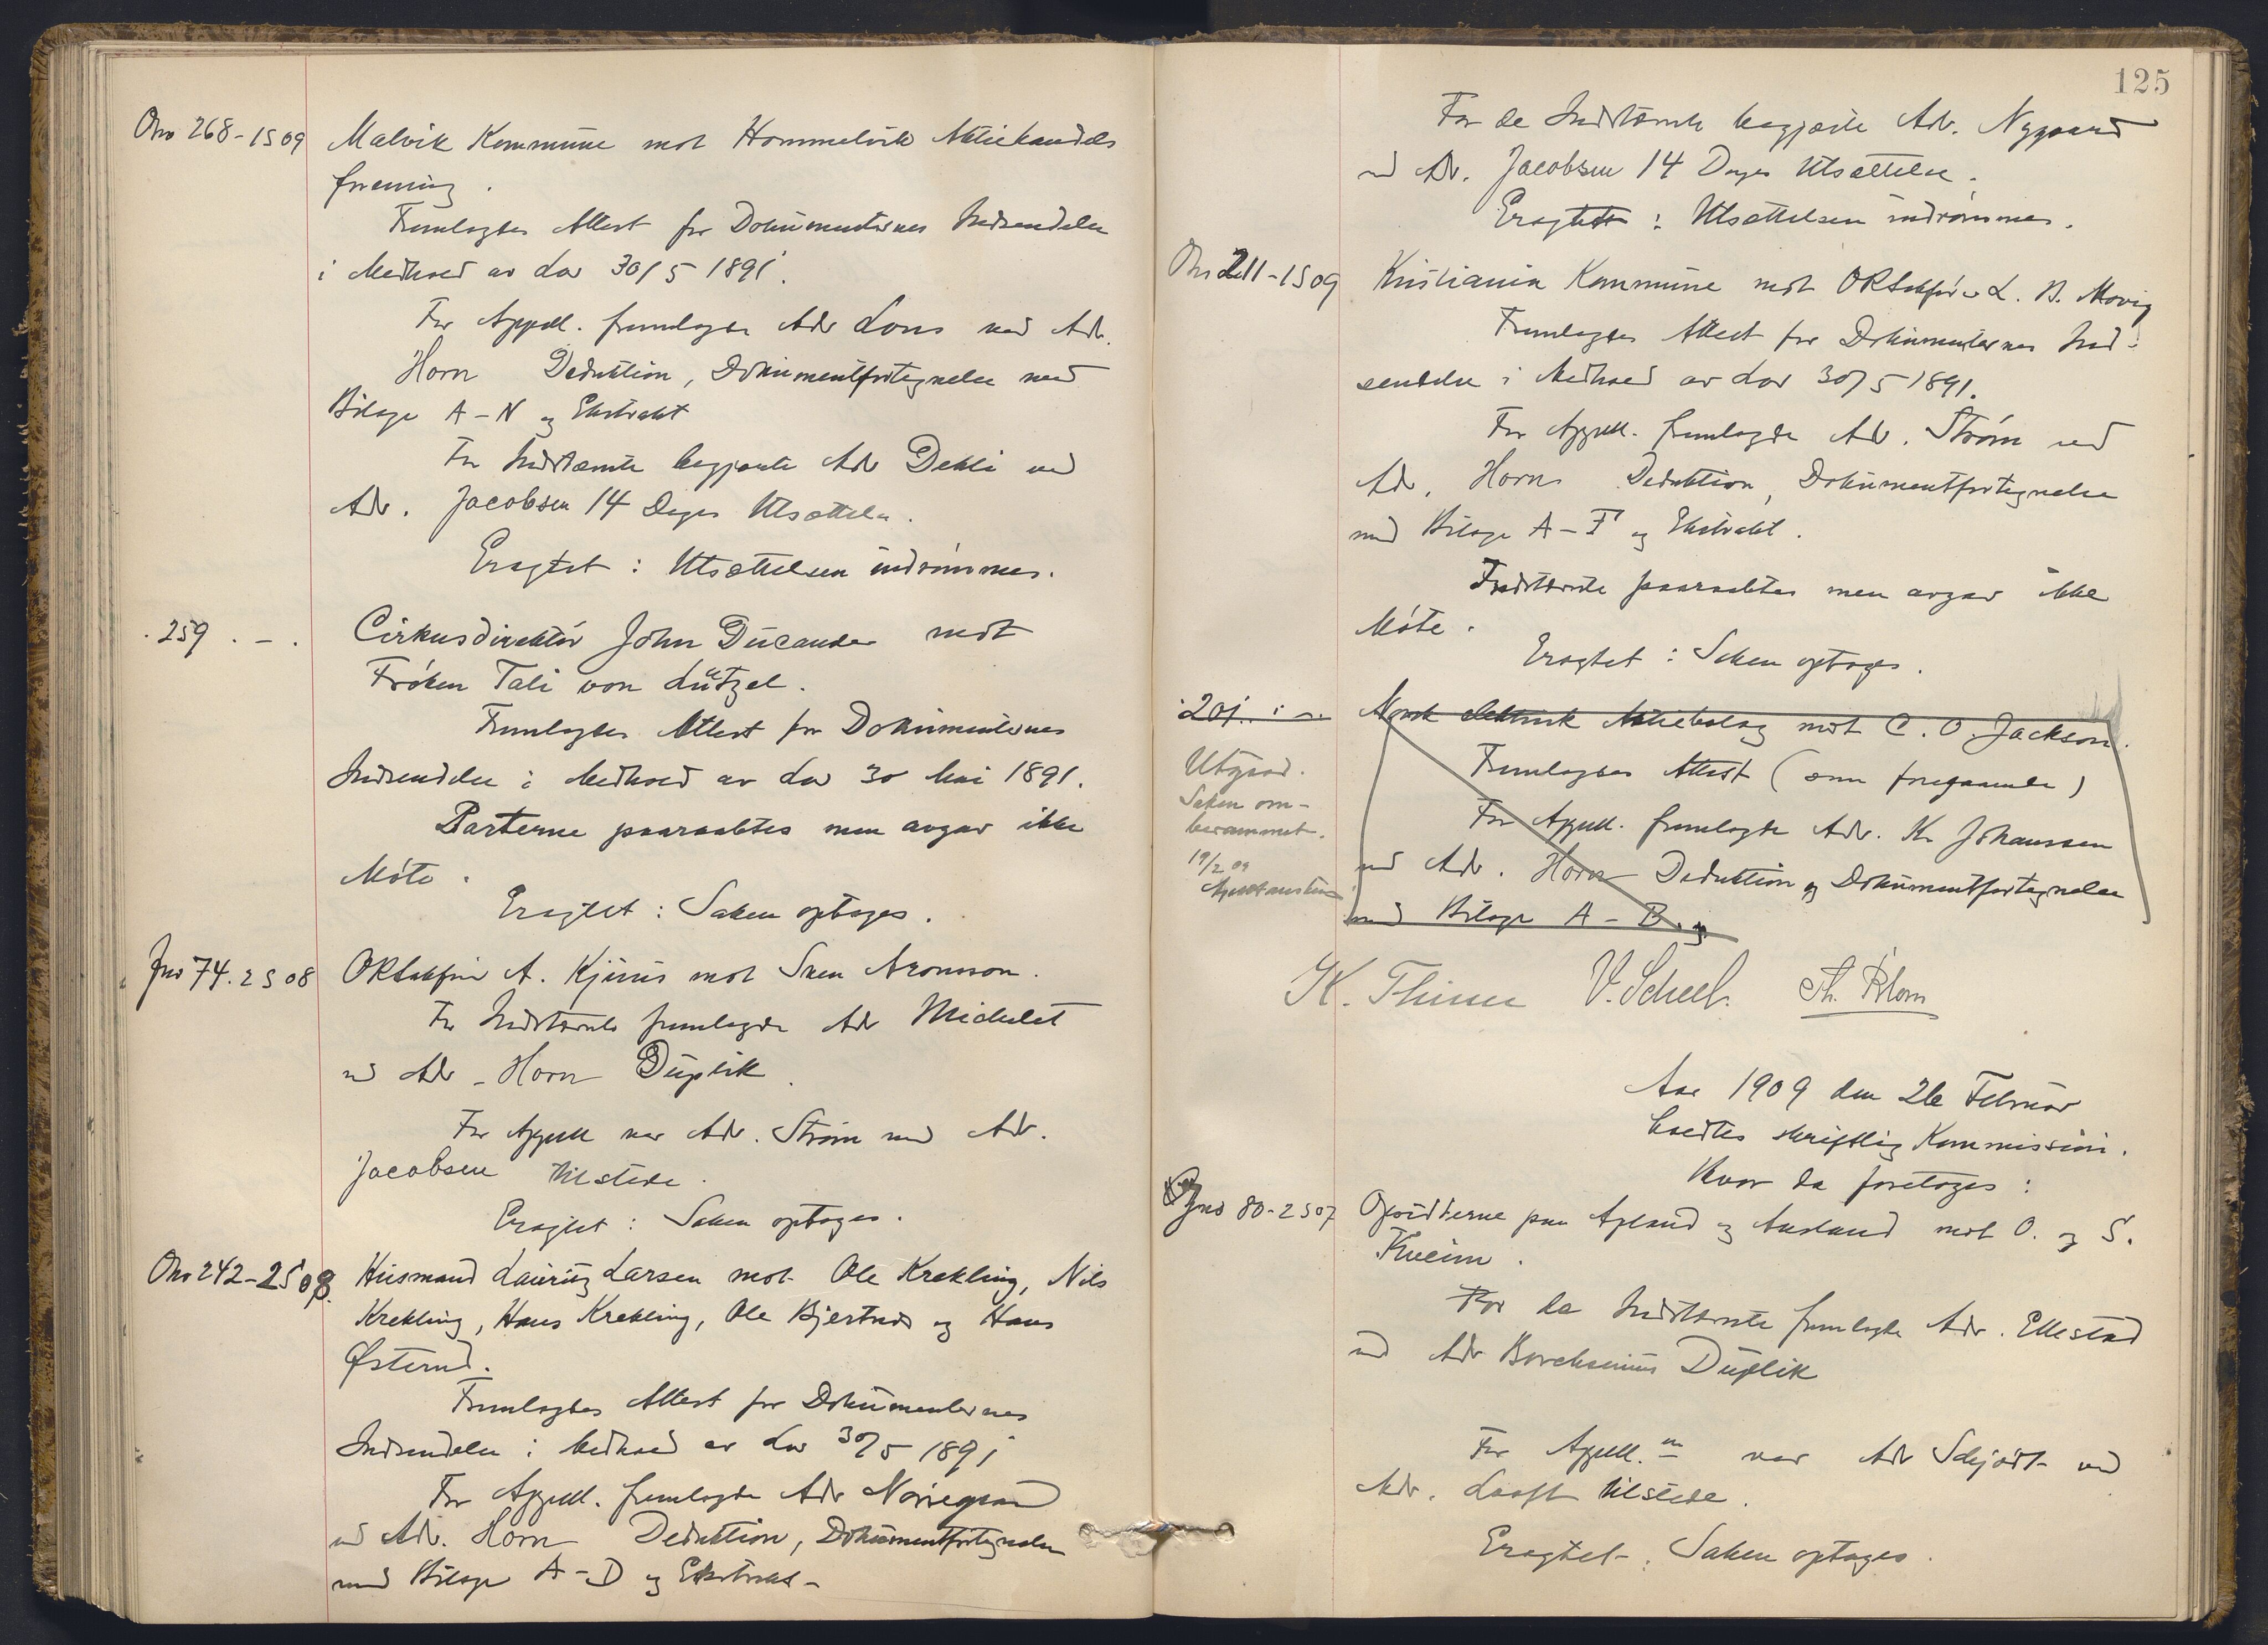 Ono 268-1S09 Malvik Kommune mot Hommelvik Aktiehandels
forening.
Fremlagdes Attest for Dokumenternes Indsendelse
i Medhold av Lov 30/5 1891.
For Appell. fremlagde Adv Lous ved Adv.
Horn Deduktion, Dokumentfortegnelse med
Bilage A-N og Ekstrakt
For Indstævnte begjærte Adv Dehli ved
Adv. Jacobsen 14 Dages Utsættelse.
Eragtet: Utsættelsen indrømmes.
. 259 . - . Cirkusdirektør John Ducander mot
Frøken Tali von Lützel.
Fremlagdes Attest for Dokumenternes
Indsendelse i Medhold av Lov 30 Mai 1891.
Parterne paaraabtes men avgav ikke
Møte.
Eragtet: Saken optages.
Jno 74. 2 S 08 ORSakfører A. Kjurus mot Sven Aronsson.
For Indstævnte fremlagde Adv Michelet
ved Adv - Horn Duplik.
For Appell var Adv. Strøm ved Adv.
Jacobsen tilstede.
Eragtet: Saken optages.
Ono 242-2S08. Husmand Lauritz Larsen mot Ole Krekling, Nils
Krekling, Hans Krekling, Ole Bjertnæs og Hans
Østerud.
Fremlagdes Attest for Dokumenternes
Indsendelse i Medhold av Lov 30/5 1891
For Appell. fremlagde Adv Nørregaard
ved Adv. Horn Deduktion, Dokumentfortegnelse
med Bilage A-D og Ekstrakt-
125
For de Indstævnte begjærte Adv. Nygaard
ved Adv. Jacobsen 14 Dages Utsættelse.
Eragtet: Utsættelsen indrømmes.
Ono 211-1S09 Kristiania Kommune mot ORSakfører L. B. Movig
Fremlagdes Attest for Dokumenternes Ind-
sendelse i Medhold av Lov 30/5 1891.
For Appell. fremlagde Adv. Strøm ved
Adv. Horn Deduktion, Dokumentfortegnelse
med Bilage A-F og Ekstrakt.
Indstævnte paaraabtes men avgav ikke
Møte.
Eragtet: Saken optages.
. 201. : -. Norsk elektrisk Aktiebolag mot C. O. Jackson.
Utgaar.
Saken om-
berammet.
19/2 09
Fremlagdes Attest (som foregaaende)
For Appell. fremlagde Adv. Kr Johanssen
ved Adv. Horn Deduktion og Dokumentfortegnelse
med Bilage A-B. og
K. Thinn V. Scheel. Th. Blom
Aar 1909 den 26 Februar
holdtes skriftlig Kommission.
Hvor da foretoges:
Jno 80-2S07 Opsidderne paa Apland og Ausland mot O. og S.
Kveim.
For de Indstævnte fremlagde Adv. Ellestad
ved Adv Borchsenius Duplik
For Appell.ne var Adv Schjødt ved
Adv. Looft tilstede.
Eragtet: Saken optages.